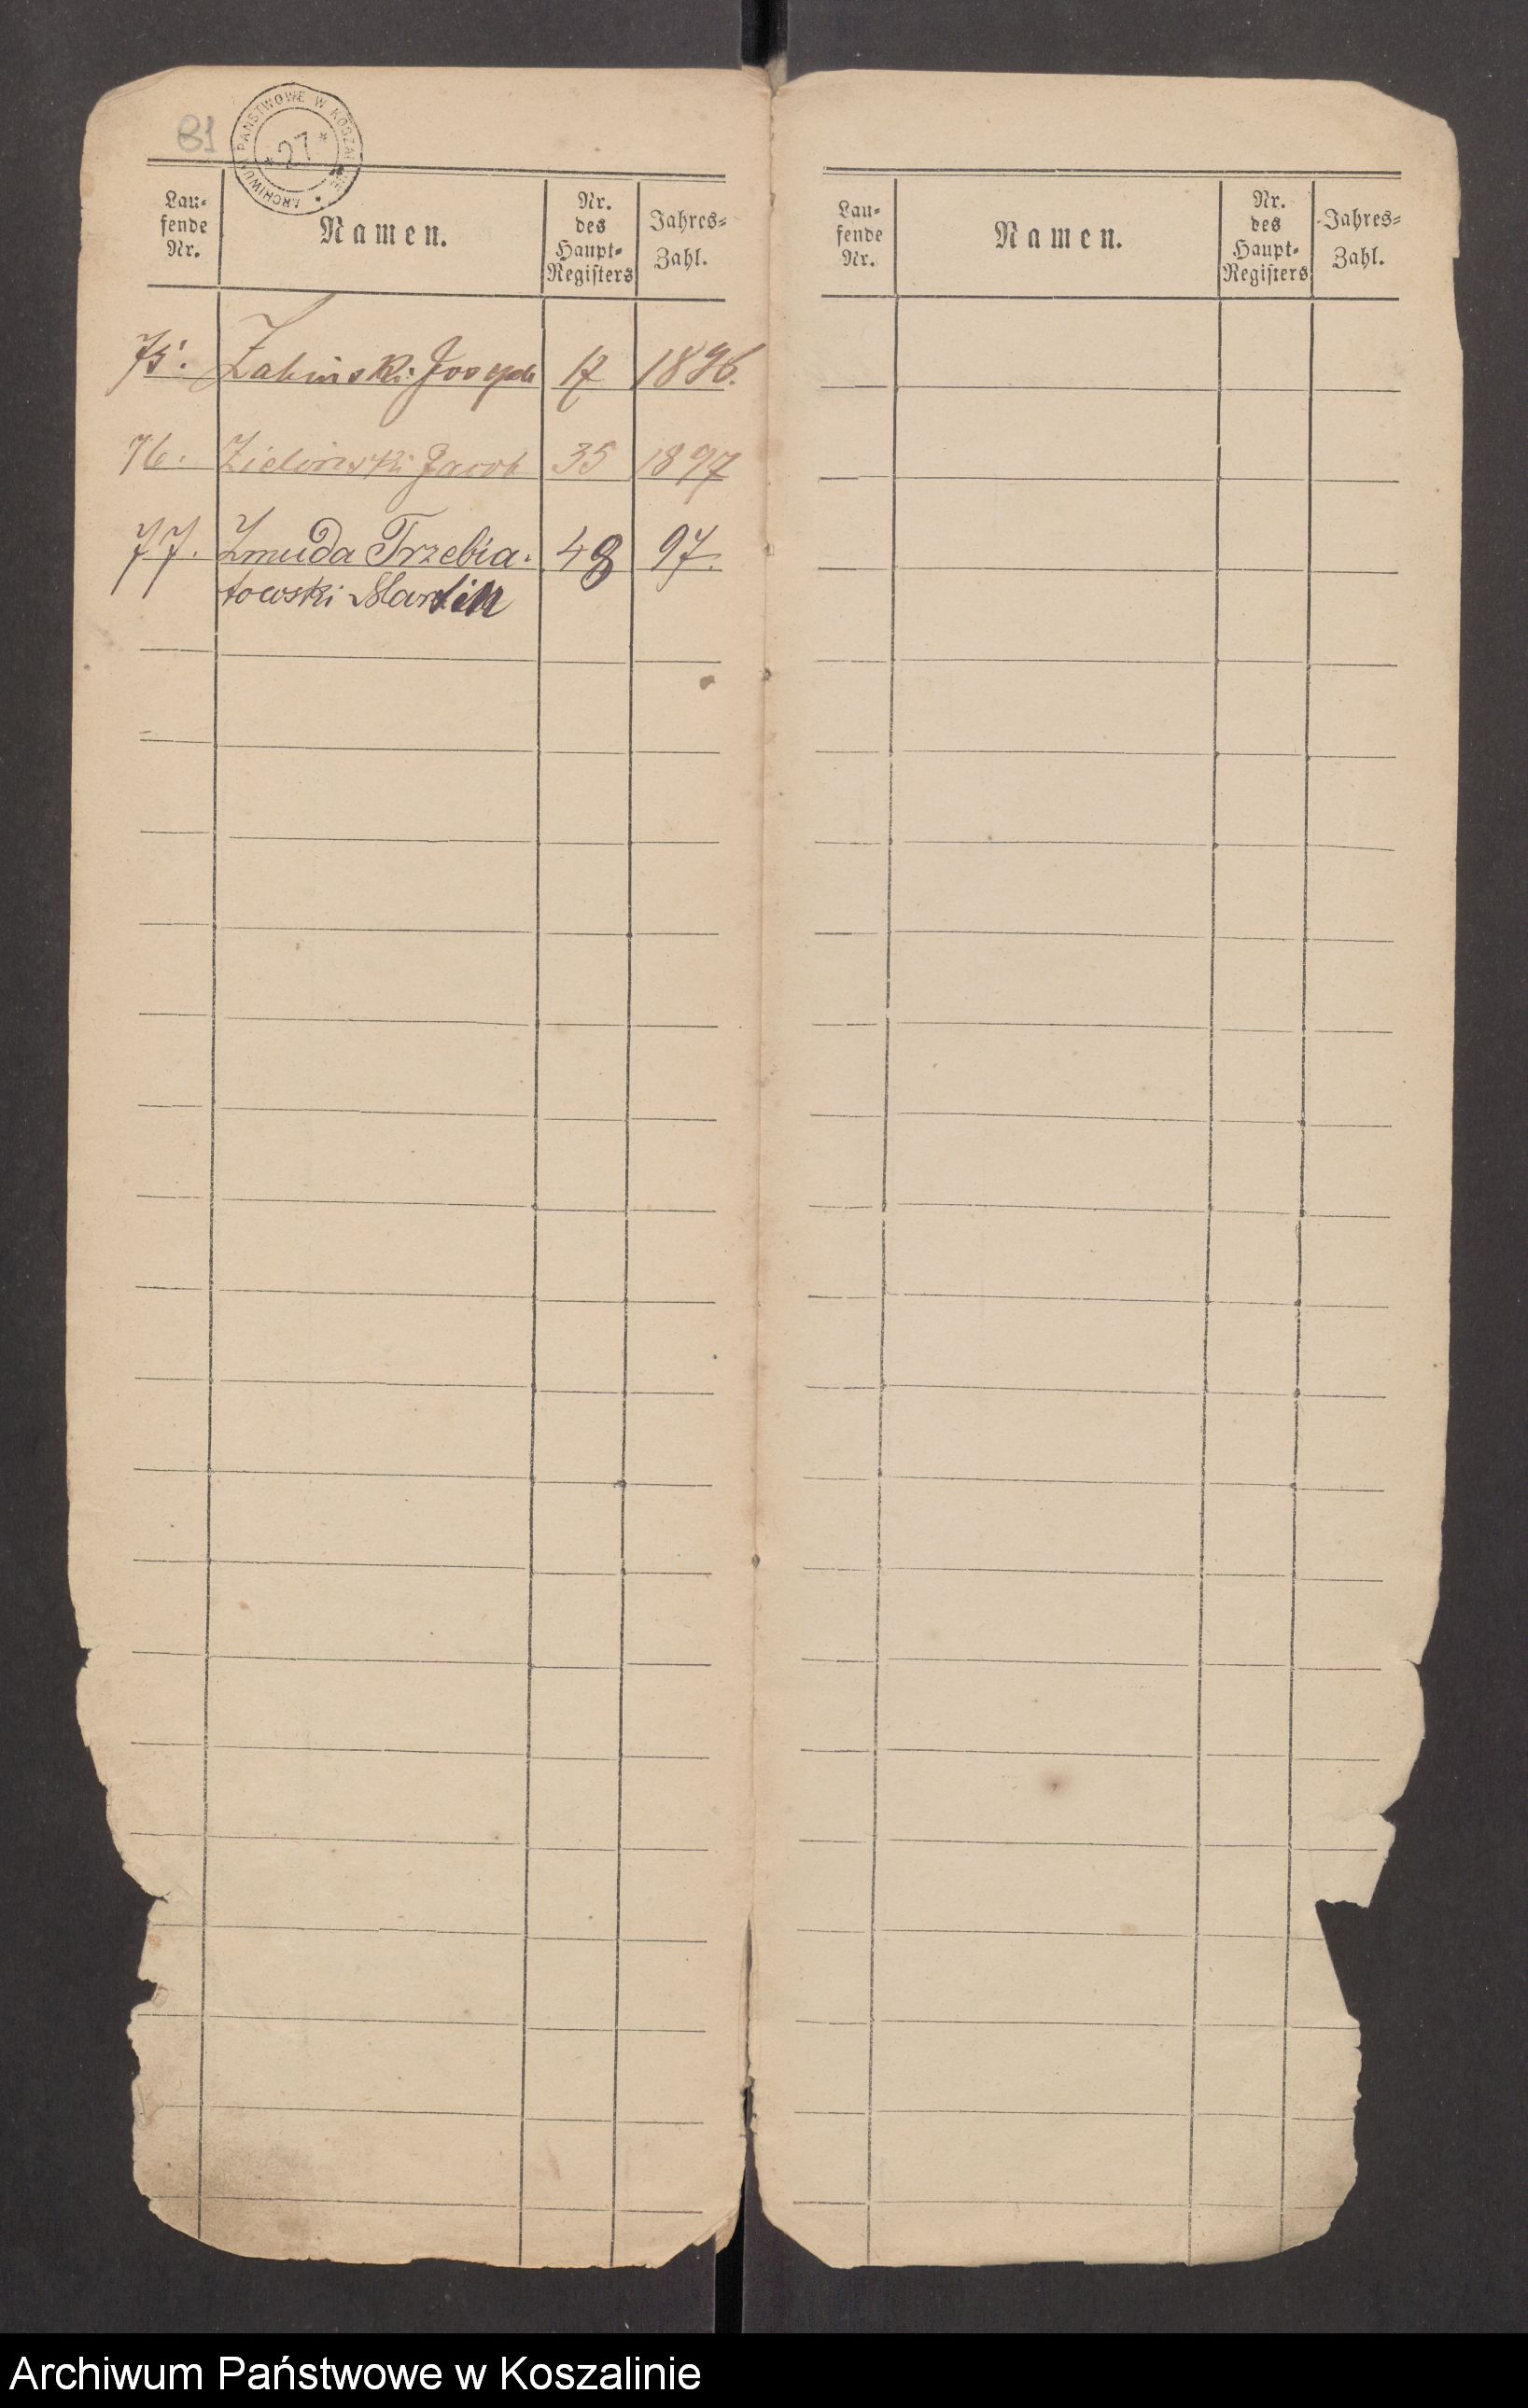 B1
ARCHIWUM PAŃSTWOWE W KOSZALINIE
* 27 *
Lau-
fende
Nr.
Namen.
Nr.
des
Haupt-
Registers
Jahres-
Zahl.
75. Zabinski Joseph 17 1896.
76. Zielinski Jacob 35 1897
77. Zmuda Trzebia- 48 97.
towski Martin
Lau-
fende
Nr.
Namen.
Nr.
des
Haupt-
Registers
Jahres-
Zahl.
Archiwum Państwowe w Koszalinie